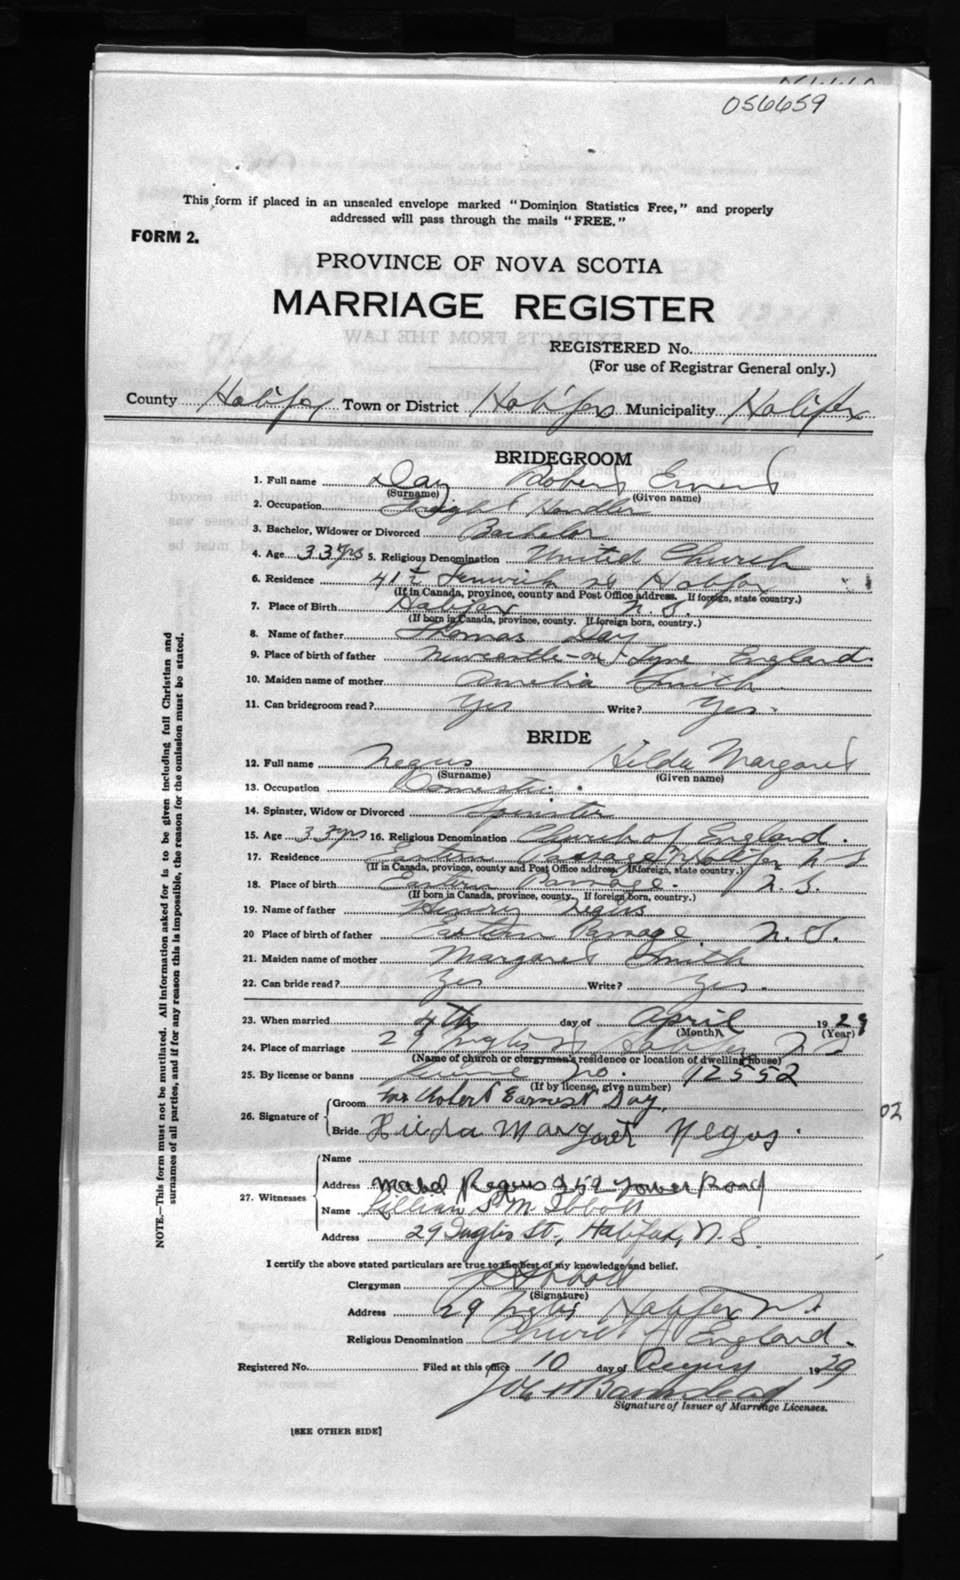 056659
This form if placed in an unsealed envelope marked "Dominion Statistics Free," and properly
addressed will pass through the mails "FREE."
FORM 2.
PROVINCE OF NOVA SCOTIA
MARRIAGE REGISTER
REGISTERED No.
(For use of Registrar General only.)
County Halifax Town or District Halifax Municipality Halifax
BRIDEGROOM
1. Full name Day Robert Ernest
(Surname) (Given name)
2. Occupation Freight Handler
3. Bachelor, Widower or Divorced Bachelor
4. Age 33 yrs 5. Religious Denomination United Church
6. Residence 41½ Fenwick St Halifax
(If in Canada, province, county and Post Office address. If foreign, state country.)
7. Place of Birth Halifax N.S.
(If born in Canada, province, county. If foreign born, country.)
8. Name of father Thomas Day
9. Place of birth of father Newcastle-on-Tyne England.
10. Maiden name of mother Amelia Smith
11. Can bridegroom read? Yes Write? Yes.
BRIDE
12. Full name Negus Hilda Margaret
(Surname) (Given name)
13. Occupation Domestic.
14. Spinster, Widow or Divorced Spinster
15. Age 33 yrs 16. Religious Denomination Church of England.
17. Residence Eastern Passage Halifax N.S
(If in Canada, province, county and Post Office address. If foreign, state country.)
18. Place of birth Eastern Passage. N.S.
(If born in Canada, province, county. If foreign born, country.)
19. Name of father Henry Negus
20 Place of birth of father Eastern Passage N.S.
21. Maiden name of mother Margaret Smith
22. Can bride read? Yes Write? Yes.
23. When married 4th day of April 1929
(Month) (Year)
24. Place of marriage 29 Inglis St Halifax N S
(Name of church or clergyman's residence or location of dwelling house)
25. By license or banns License No. 12552
(If by license, give number)
26. Signature of
Groom Mr Robert Earnest Day.
Bride Hilda Margaret Negus.
27. Witnesses
Name
Address Negus 259 Tower Road
Name Lillian M Abbott
Address 29 Inglis St., Halifax, N.S.
I certify the above stated particulars are true to the best of my knowledge and belief.
Clergyman Abbott
(Signature)
Address 29 Inglis Halifax N.S.
Religious Denomination Church of England.
Registered No. Filed at this office 10 day of 1929
Signature of Issuer of Marriage Licenses.
[SEE OTHER SIDE]
NOTE.—This form must not be mutilated. All information asked for is to be given including full Christian and
surnames of all parties, and if for any reason this is impossible, the reason for the omission must be stated.
02